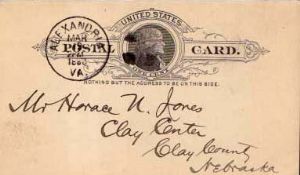 ALEXANDRIA
MAR
188
VA.
UNITED STATES
POSTAL CARD.
ONE CENT
NOTHING BUT THE ADDRESS TO BE ON THIS SIDE.
Mr Horace N. Jones
Clay Center
Clay County
Nebraska